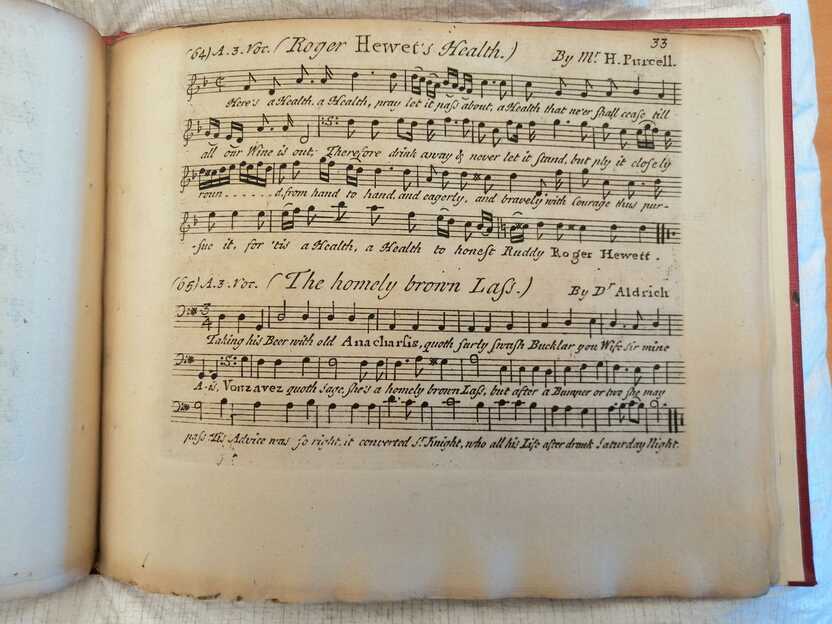 33
(64) A. 3. Voc. (Roger Hewet's Health.) By Mr. H. Purcell.
Here's a Health, a Health, pray let it paſs about, a Health that ne'er ſhall ceaſe till
all our Wine is out; Therefore drink away & never let it ſtand, but ply it cloſely
roun - - - - - d, from hand to hand, and eagerly, and bravely with Courage thus pur-
-ſue it, for 'tis a Health, a Health to honeſt Ruddy Roger Hewett.
(65) A. 3. Voc. (The homely brown Laſs.) By Dr Aldrich
3
4
Taking his Beer with old Anacharſis, quoth ſurly ſwaſh Bucklar you Wife ſir mine
A- is, Vonzavez quoth Sage, ſhe's a homely brown Laſs, but after a Bumper or two ſhe may
paſs Tis Advice was ſo right, it converted Sr. Knight, who all his Life after drunk Saturday Night.